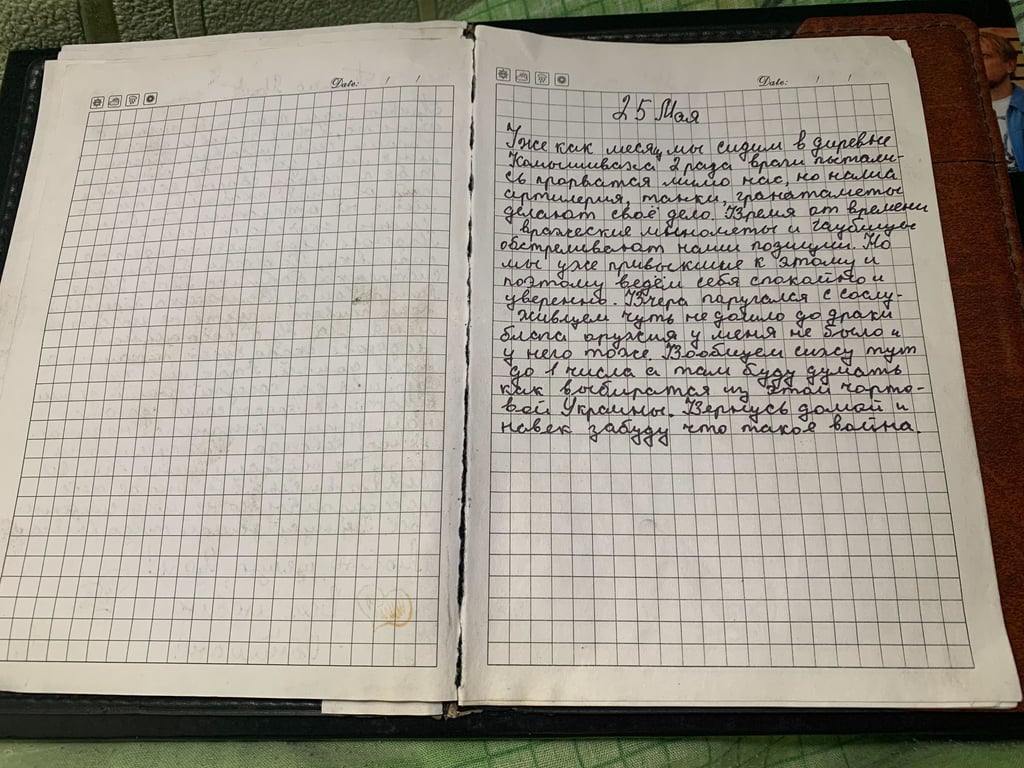 Date: / /
Date: / /
25 Мая
Уже как месяц мы сидим в диревне
Камышиваха 2 раза враги пытали-
сь прорватся мимо нас, но наша
артилерия, танки, гранатаметы
делают своё дело. Время от времени
вражеские миномёты и гаубицы
обстреливают наши позицции. Но
мы уже привыкшие к этому и
поэтому ведём себя спокойно и
уверенно. Вчера паругался с сослу-
живцем чуть не дошло до драки
блага оружия у меня не было и
у него тоже. Вообщем сижу тут
до 1 числа а там буду думать
как выбиратся из этой чорто-
вой Украины. Вернусь домой и
навек забуду что такое война.